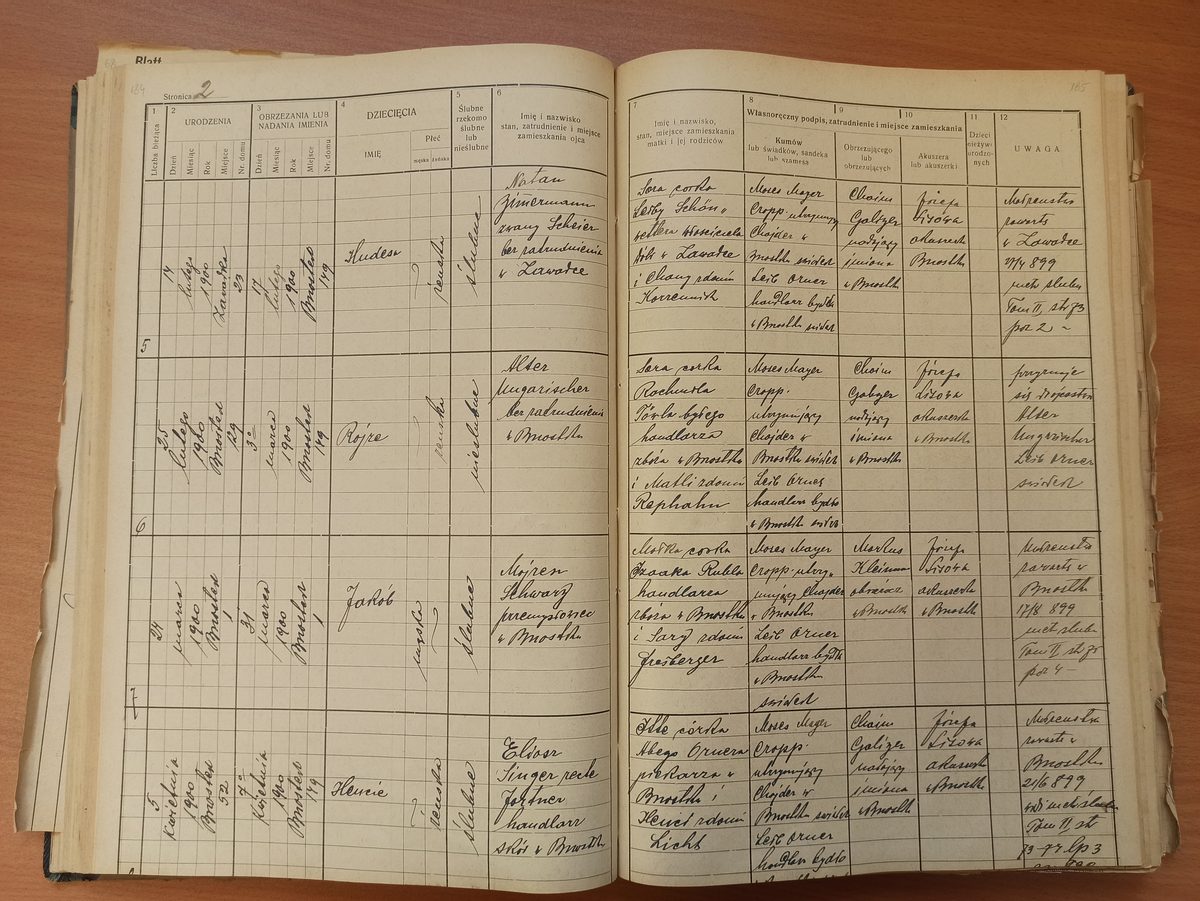 Blatt
184
185
Stronica 2
1
Liczba bieżąca
2
URODZENIA
Dzień
Miesiąc
Rok
Miejsce
Nr. domu
3
OBRZEZANIA LUB
NADANIA IMIENIA
Dzień
Miesiąc
Rok
Miejsce
Nr. domu
4
DZIECIĘCIA
IMIĘ
Płeć
męska
żeńska
5
Ślubne
rzekomo
ślubne
lub
nieślubne
6
Imię i nazwisko
stan, zatrudnienie i miejsce
zamieszkania ojca
7
Imię i nazwisko,
stan, miejsce zamieszkania
matki i jej rodziców
8
9
10
Własnoręczny podpis, zatrudnienie i miejsce zamieszkania
Kumów
lub świadków, sandeka
lub szamesa
Obrzezującego
lub
obrzezujących
Akuszera
lub akuszerki
11
Dzieci
nieżywo
urodzo-
nych
12
UWAGA
5
14
lutego
1900
Zawadka
23
17
lutego
1900
Brzostek
149
Hudesa
żeńska
ślubne
Natan
Zimermann
zwany Scheier
bez zatrudnienia
w Zawadce
Sara córka
Leiby Schön
i Chany zdomu
Moses Mayer
Cropp utrzymujący
Chajder w
Brzostku świadek
Leib Orner
handlarz bydła
w Brzostku świadek
Chaim
Galizer
nadający
imiona
w Brzostku
Józefa
Lisowa
akuszerka
Brzostku
Małżeństwo
zawarte
w Zawadce
Tom II, str 73
poz 2
6
25
lutego
1900
Brzostek
29
3
marca
1900
Brzostek
149
Rojze
żeńska
nieślubne
Alter
Ungarischer
bez zatrudnienia
w Brzostku
Sara córka
handlarza
zboża w Brzostku
i Matli zdomu
Rephahn
Moses Mayer
Cropp
utrzymujący
Chajder w
Brzostku świadek
Leib Orner
handlarz bydła
w Brzostku świadek
Chaim
Galizer
nadający
imiona
w Brzostku
Józefa
Lisowa
akuszerka
w Brzostku
przyznaje
się do ojcostwa
Alter
Ungarischer
Leib Orner
świadek
7
24
marca
1900
Brzostek
1
31
marca
1900
Brzostek
1
Jakób
męska
ślubne
Mojżesz
Schwarz
przemysłowiec
w Brzostku
Małka córka
Izaaka Rubla
handlarza
zboża w Brzostku
i Sary zdomu
Moses Mayer
Cropp utrzy-
mujący Chajder
w Brzostku
Leib Orner
handlarz bydła
w Brzostku
świadek
Markus
Kleinman
obrzezacz
w Brzostku
Józefa
Lisowa
akuszerka
w Brzostku
Małżeństwo
zawarte w
Brzostku
metr ślubu
Tom II, str 75
poz 4
5
kwietnia
1900
Brzostek
52
7
kwietnia
1900
Brzostek
149
Hencie
żeńska
ślubne
Eliasz
Singer recte
Fortner
handlarz
skór w Brzostku
Itte córka
Abego Ornera
piekarza w
Brzostku i
Henci zdomu
Licht
Moses Mayer
Cropp
utrzymujący
Chajder w
Brzostku świadek
Leib Orner
handlarz bydła
Chaim
Galizer
nadający
imiona
w Brzostku
Józefa
Lisowa
akuszerka
w Brzostku
Małżeństwo
zawarte w
Brzostku
21/6 899
Tom II, st